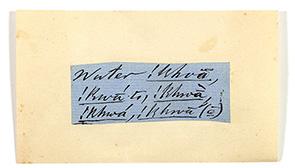 Water !khwā,
!kwā ts, !khwā,
!khwá, !khwā (2)